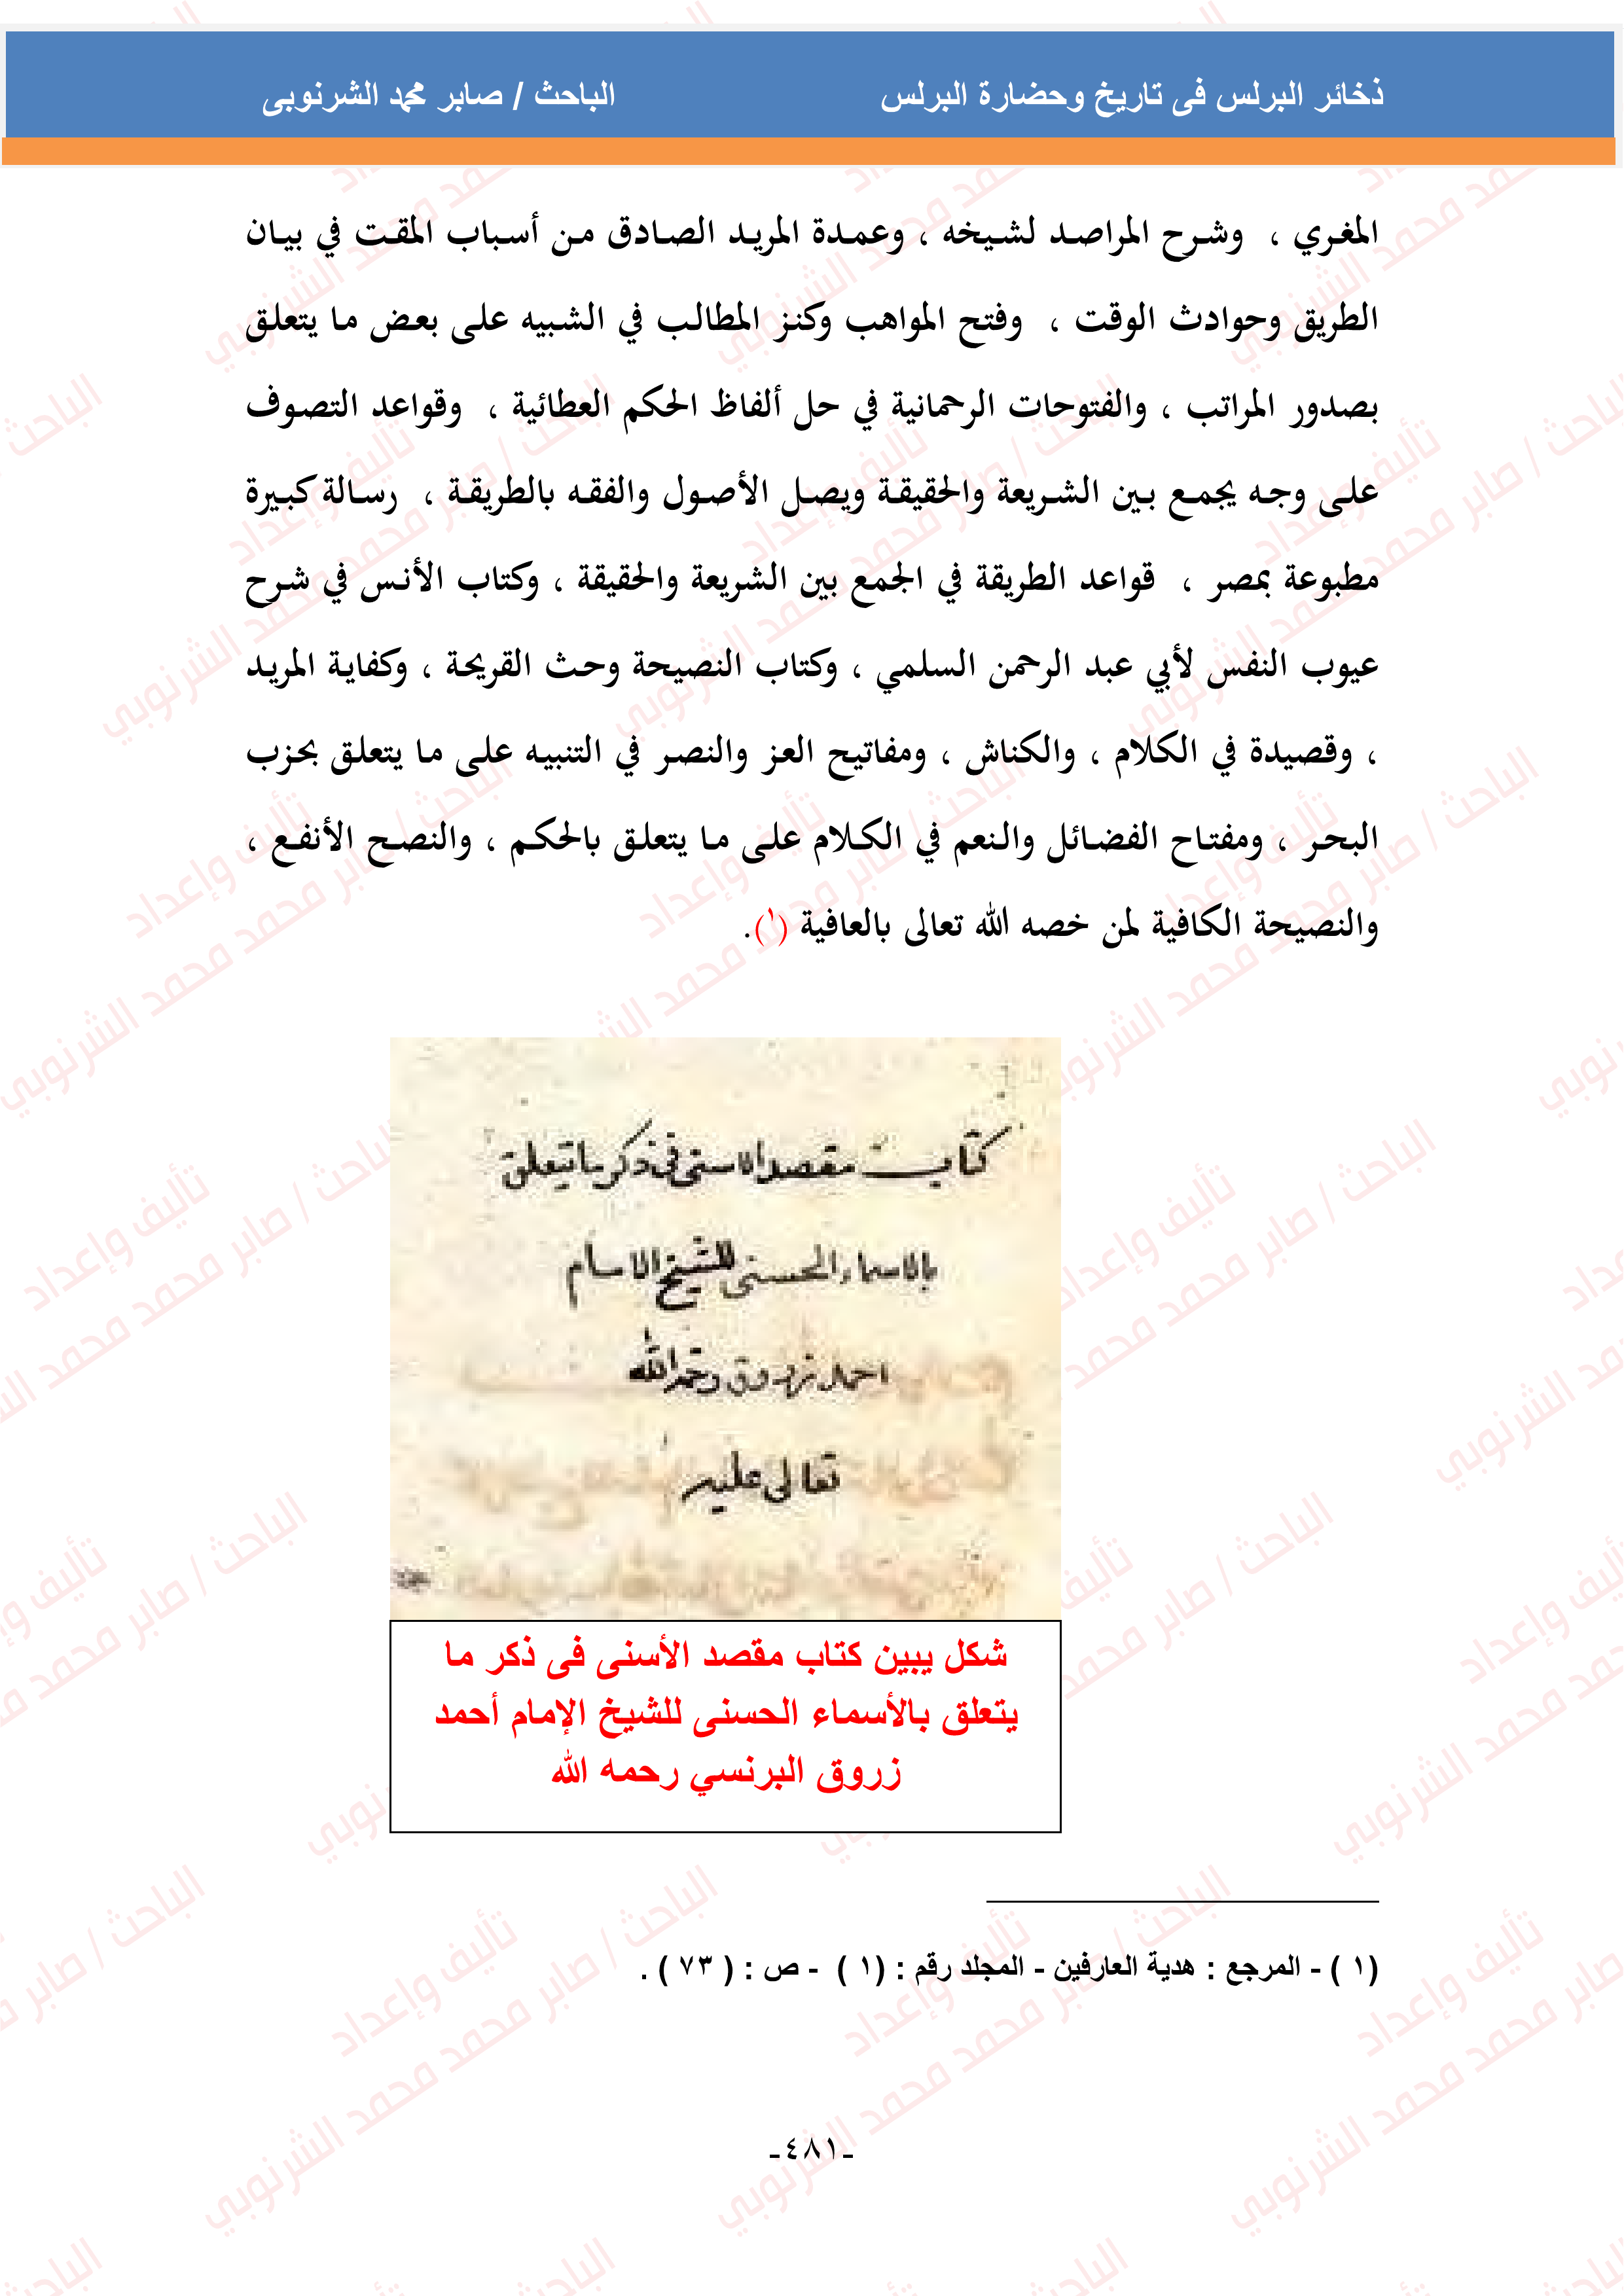 ذخائر البرلس فى تاريخ وحضارة البرلس الباحث / صابر محمد الشرنوبى
المغري ، وشرح المراصد لشيخه ، وعمدة المريد الصادق من أسباب المقت في بيان
الطريق وحوادث الوقت ، وفتح المواهب وكنز المطالب في الشبيه على بعض ما يتعلق
بصدور المراتب ، والفتوحات الرحمانية في حل ألفاظ الحكم العطائية ، وقواعد التصوف
على وجه يجمع بين الشريعة والحقيقة ويصل الأصول والفقه بالطريقة ، رسالة كبيرة
مطبوعة بمصر ، قواعد الطريقة في الجمع بين الشريعة والحقيقة ، وكتاب الأنس في شرح
عيوب النفس لأبي عبد الرحمن السلمي ، وكتاب النصيحة وحث القريحة ، وكفاية المريد
، وقصيدة في الكلام ، والكناش ، ومفاتيح العز والنصر في التنبيه على ما يتعلق بحزب
البحر ، ومفتاح الفضائل والنعم في الكلام على ما يتعلق بالحكم ، والنصح الأنفع ،
والنصيحة الكافية لمن خصه الله تعالى بالعافية (١).
كتاب مقصد الاسنى فى ذكر ما يتعلق
بالاسماء الحسنى للشيخ الامام
احمد زروق رحمة الله
تعالى عليه
شكل يبين كتاب مقصد الأسنى فى ذكر ما
يتعلق بالأسماء الحسنى للشيخ الإمام أحمد
زروق البرنسي رحمه الله
(١ ) - المرجع : هدية العارفين - المجلد رقم : (١ ) - ص : ( ٧٣ ) .
-٤٨١-
تأليف وإعداد
الباحث / صابر محمد محمد الشرنوبي